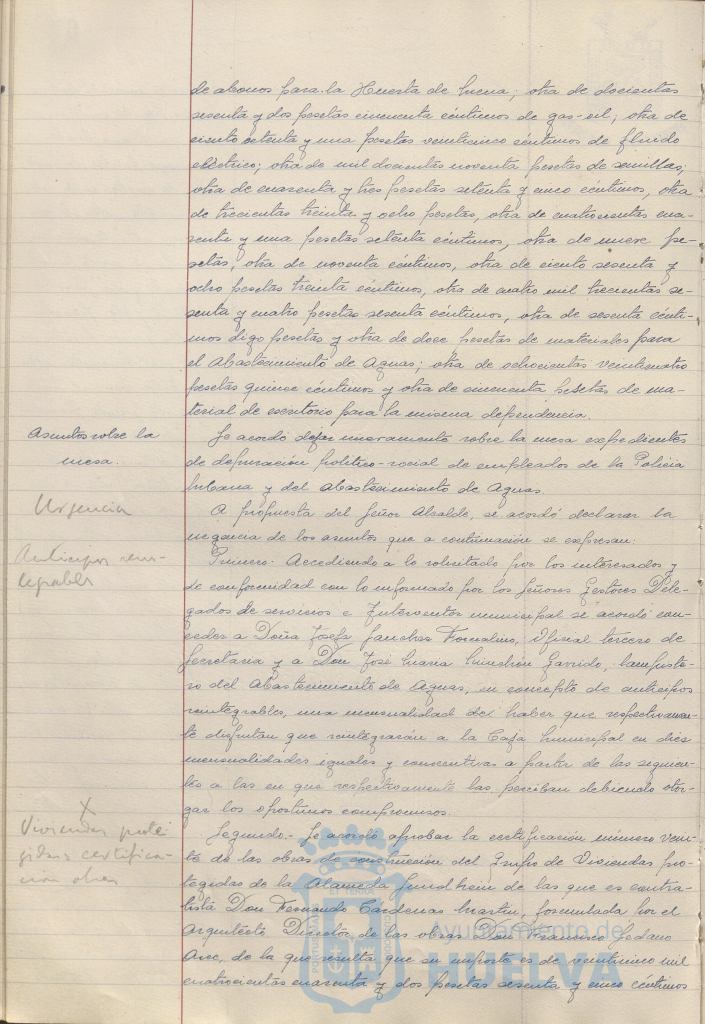 de abonos para la Huerta de Mena; otra de docientas
sesenta y dos pesetas cincuenta céntimos de gas-oil, otra de
ciento setenta y una pesetas veinticinco céntimos de fluido
eléctrico; otra de mil docientas noventa pesetas de semillas,
otra de cuarenta y tres pesetas setenta y cinco céntimos, otra
de trecientas treinta y ocho pesetas, otra de cuatrocientas cua-
renta y una pesetas setenta céntimos, otra de nueve pe-
setas, otra de noventa céntimos, otra de ciento sesenta y
ocho pesetas treinta céntimos, otra de cuatro mil trecientas se-
senta y cuatro pesetas sesenta céntimos, otra de sesenta cénti-
mos digo pesetas y otra de doce pesetas de materiales para
el Abastecimiento de Aguas; otra de ochocientas veinticuatro
pesetas quince céntimos y otra de cincuenta pesetas de ma-
terial de escritorio para la misma dependencia.
Asuntos sobre la
mesa.
Se acordó dejar nuevamente sobre la mesa expedientes
de depuración político-social de empleados de la Policía
Urbana y del Abastecimiento de Aguas.
Urgencia
A propuesta del Señor Alcalde, se acordó declarar la
urgencia de los asuntos que a continuación se expresan:
Anticipos rein-
tegrables
Primero.- Accediendo a lo solicitado por los interesados y
de conformidad con lo informado por los Señores Gestores Dele-
gados de servicios e Interventor municipal se acordó con-
ceder a Doña Josefa Sanchez Oficial tercero de
Secretaría y a Don José María Garrido,
del Abastecimiento de Aguas, en concepto de anticipos
reintegrables, una mensualidad del haber que respectivamen-
te disfrutan que reintegrarán a la Caja Municipal en diez
mensualidades iguales y consecutivas a partir de las siguien-
tes a las en que respectivamente las perciban debiendo otor-
gar los oportunos compromisos.
X
Viviendas prote-
gidas certifica-
cion obras
Segundo.- Se acordó aprobar la certificación número vein-
te de las obras de construcción del Grupo de Viviendas pro-
tegidas de la Alameda Sundheim de las que es contra-
tista Don Fernando Cárdenas Martin, formulada por el
Arquitecto Director de las obras Don Francisco Sedano
Arce, de la que resulta que su importe es de veinticinco mil
cuatrocientas cuarenta y dos pesetas sesenta y cinco céntimos
Ayuntamiento de
HUELVA